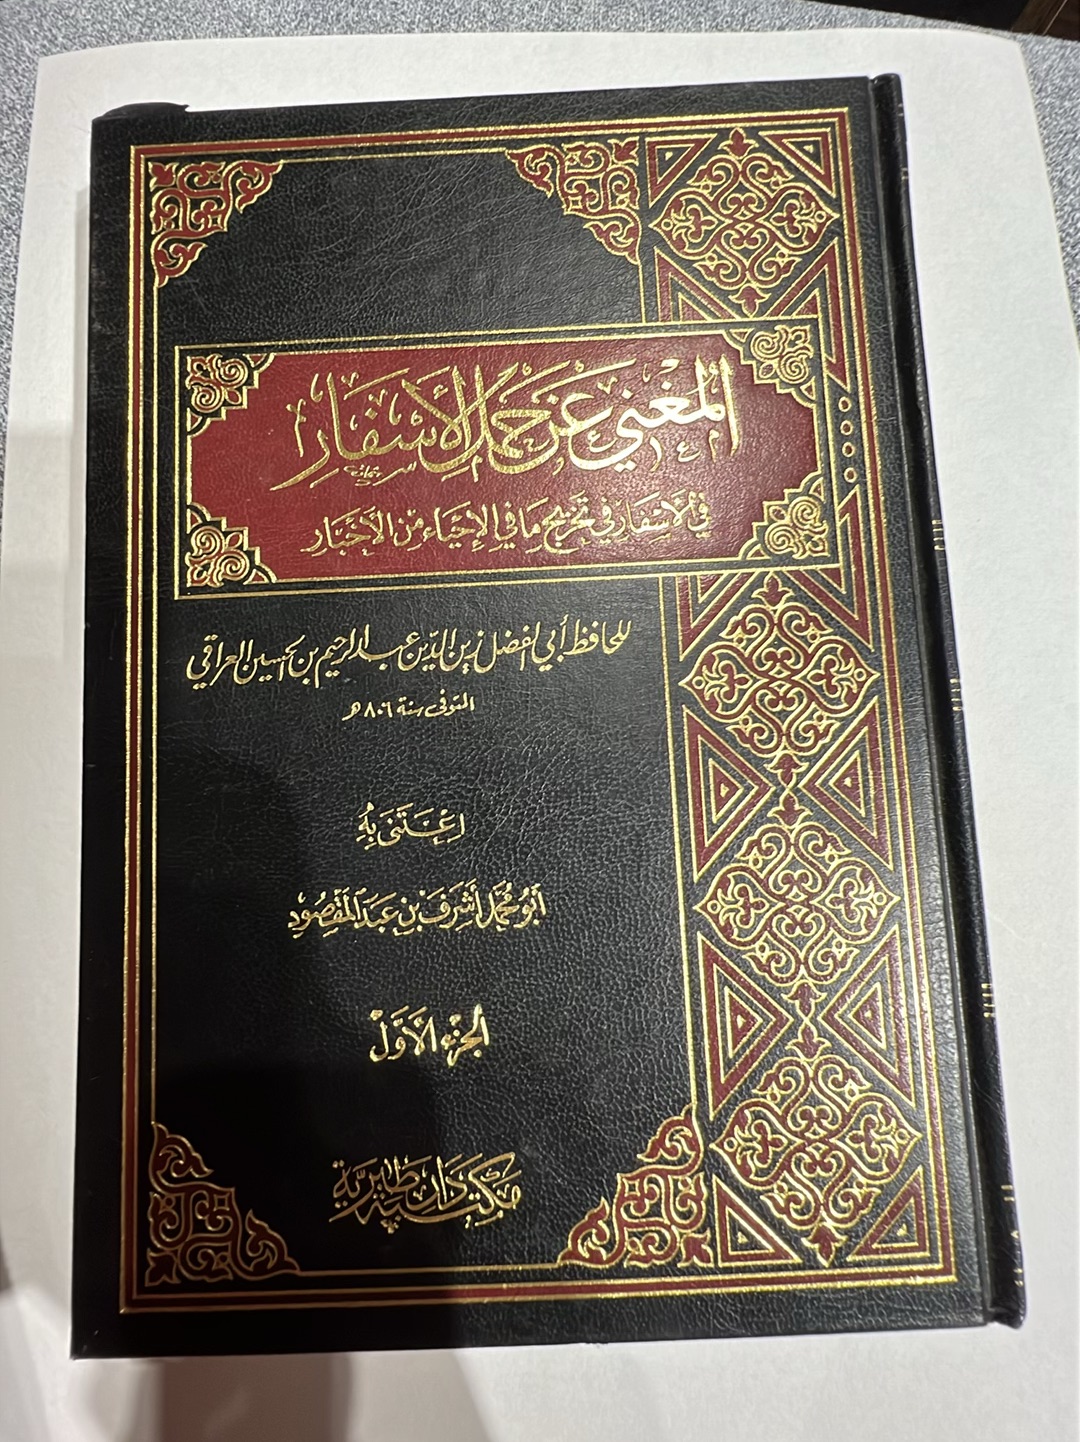 المغني عن حمل الأسفار
في الأسفار في تخريج ما في الإحياء من الأخبار
للحافظ أبي الفضل زين الدين عبد الرحيم بن الحسين العراقي
المتوفى سنة ٨٠٦ هـ
اعتنى به
أبو محمد أشرف بن عبد المقصود
الجزء الأول
مكتبة دار طبرية